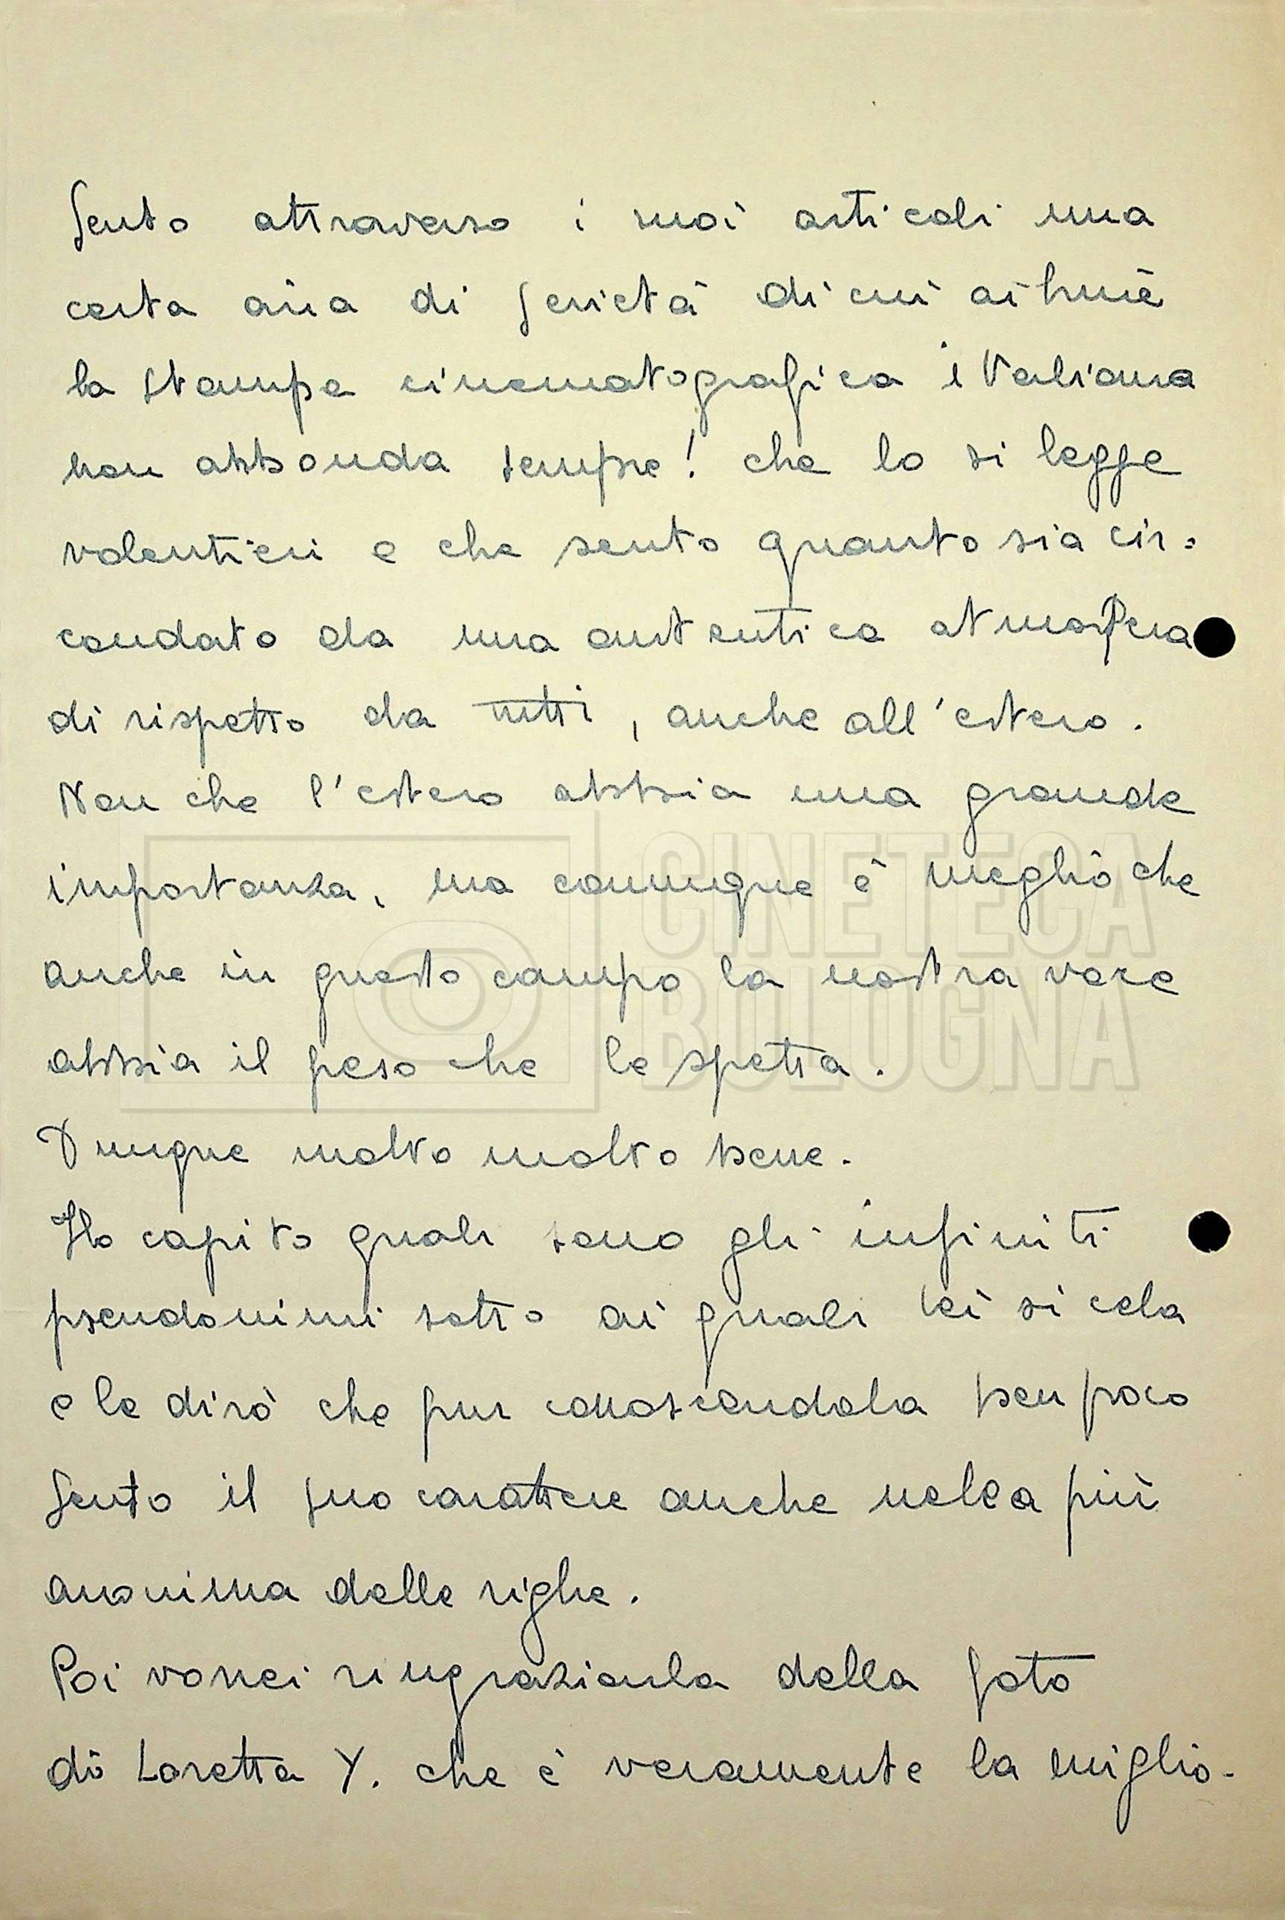 Sento attraverso i suoi articoli una
certa aria di serietà di cui ai hmè
la stampa cinematografica italiana
non abbonda sempre! che lo si legge
volentieri e che sento quanto sia cir=
condato da una autentica atmosfera
di rispetto da tutti, anche all'estero.
Non che l'estero abbia una grande
importanza, ma comunque è meglio che
anche in questo campo la nostra voce
abbia il peso che le spetta.
Dunque molto molto bene.
Ho capito quali sono gli infiniti
pseudonimi sotto ai quali lei si cela
e le dirò che pur conoscendola ben poco
sento il suo carattere anche nella più
anonima delle righe.
Poi vorrei ringraziarla della foto
di Loretta Y. che è veramente la miglio-
CINETECA
BOLOGNA